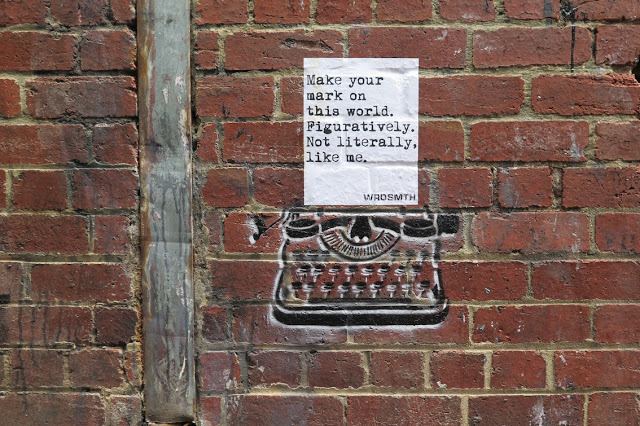 Make your
mark on
this world.
Figuratively.
Not literally,
like me.
WRDSMTH